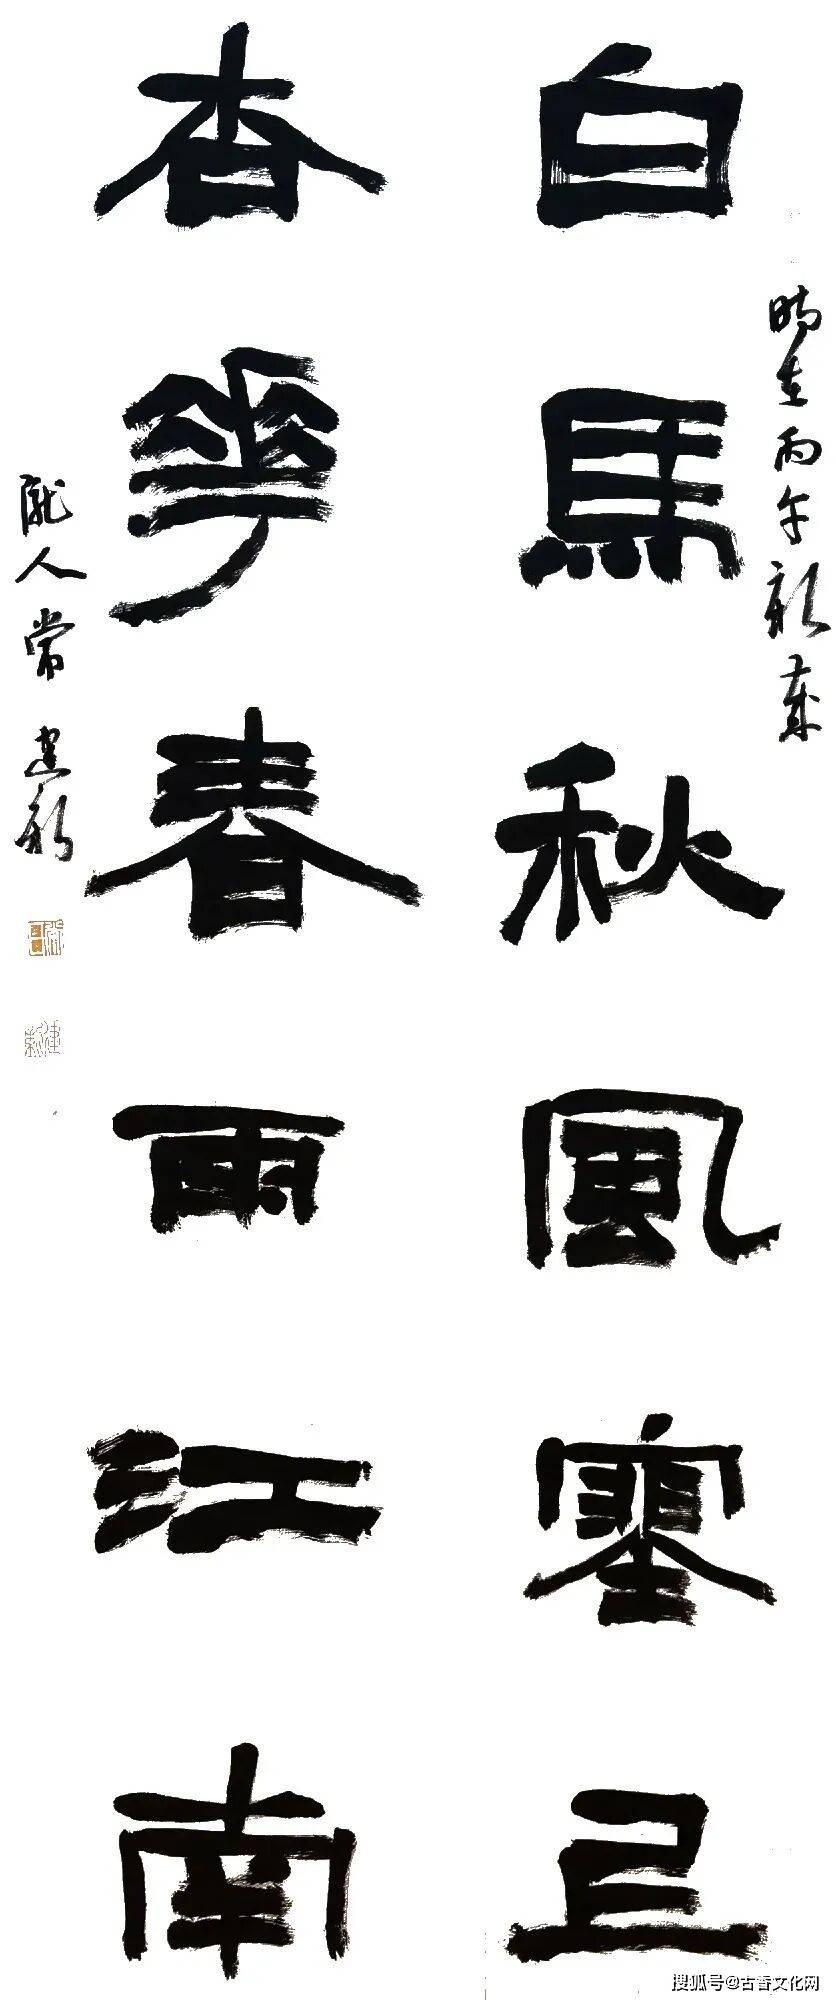 白馬秋風塞上
時在丙午新歲
杏華春雨江南
隴人常建
搜狐号@古香文化网